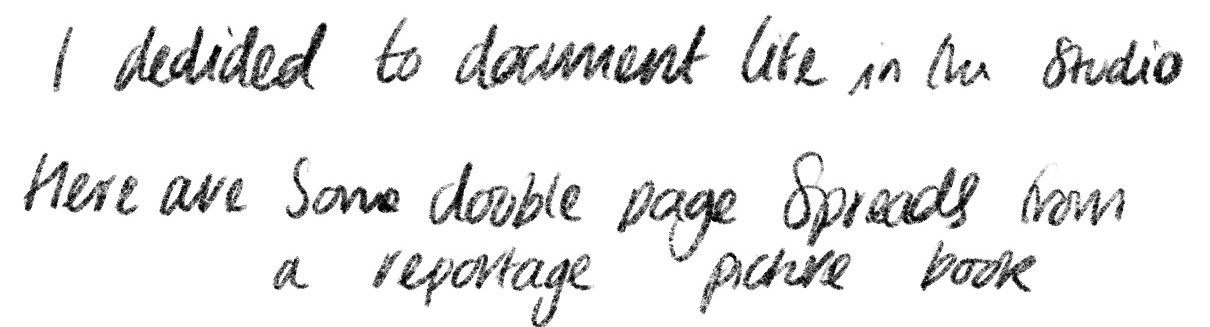 I dedided to document life in the studio
Here are some double page spreads from
a reportage picture book